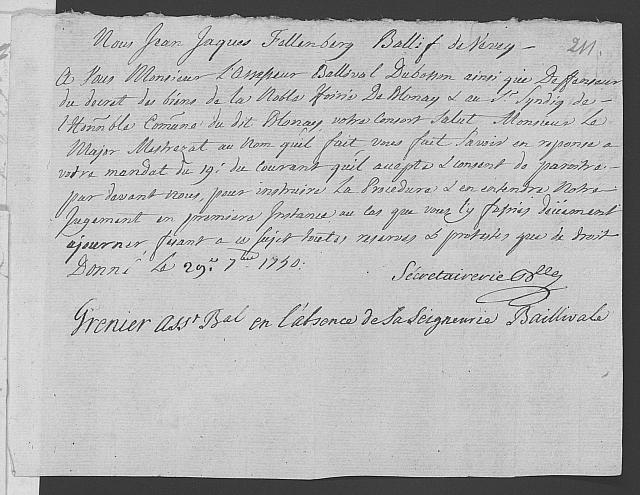 211.
Nous Jean Jaques Fellenberg Ballif de Vevey –
A Vous Monsieur L'Assesseur Balleval Dubossin ainsi que Deffenseur
du decret des biens de la Noble Hoirie De Blonay & au Sr. Syndiq de –
l'Honnble Comune du dit Blonay, votre Consort Salut Monsieur Le
Major Mestrezat au Nom qu'il fait vous fait savoir en reponse a
votre mandat du 19e. du courant qu'il accepte & consent de paroitre
par devant Nous, pour instruire La Procedure & en entendre Notre
Jugement en premiere Instance au cas que vous l'y fassiés deüement
ajourner fesant a ce sujet toutes reserves & protestes que de droit
Donné Le 29e. 7bre 1750.
Sécretairerie Blle
Grenier Asst Bal en l'absence de Sa Seigneurie Baillivale